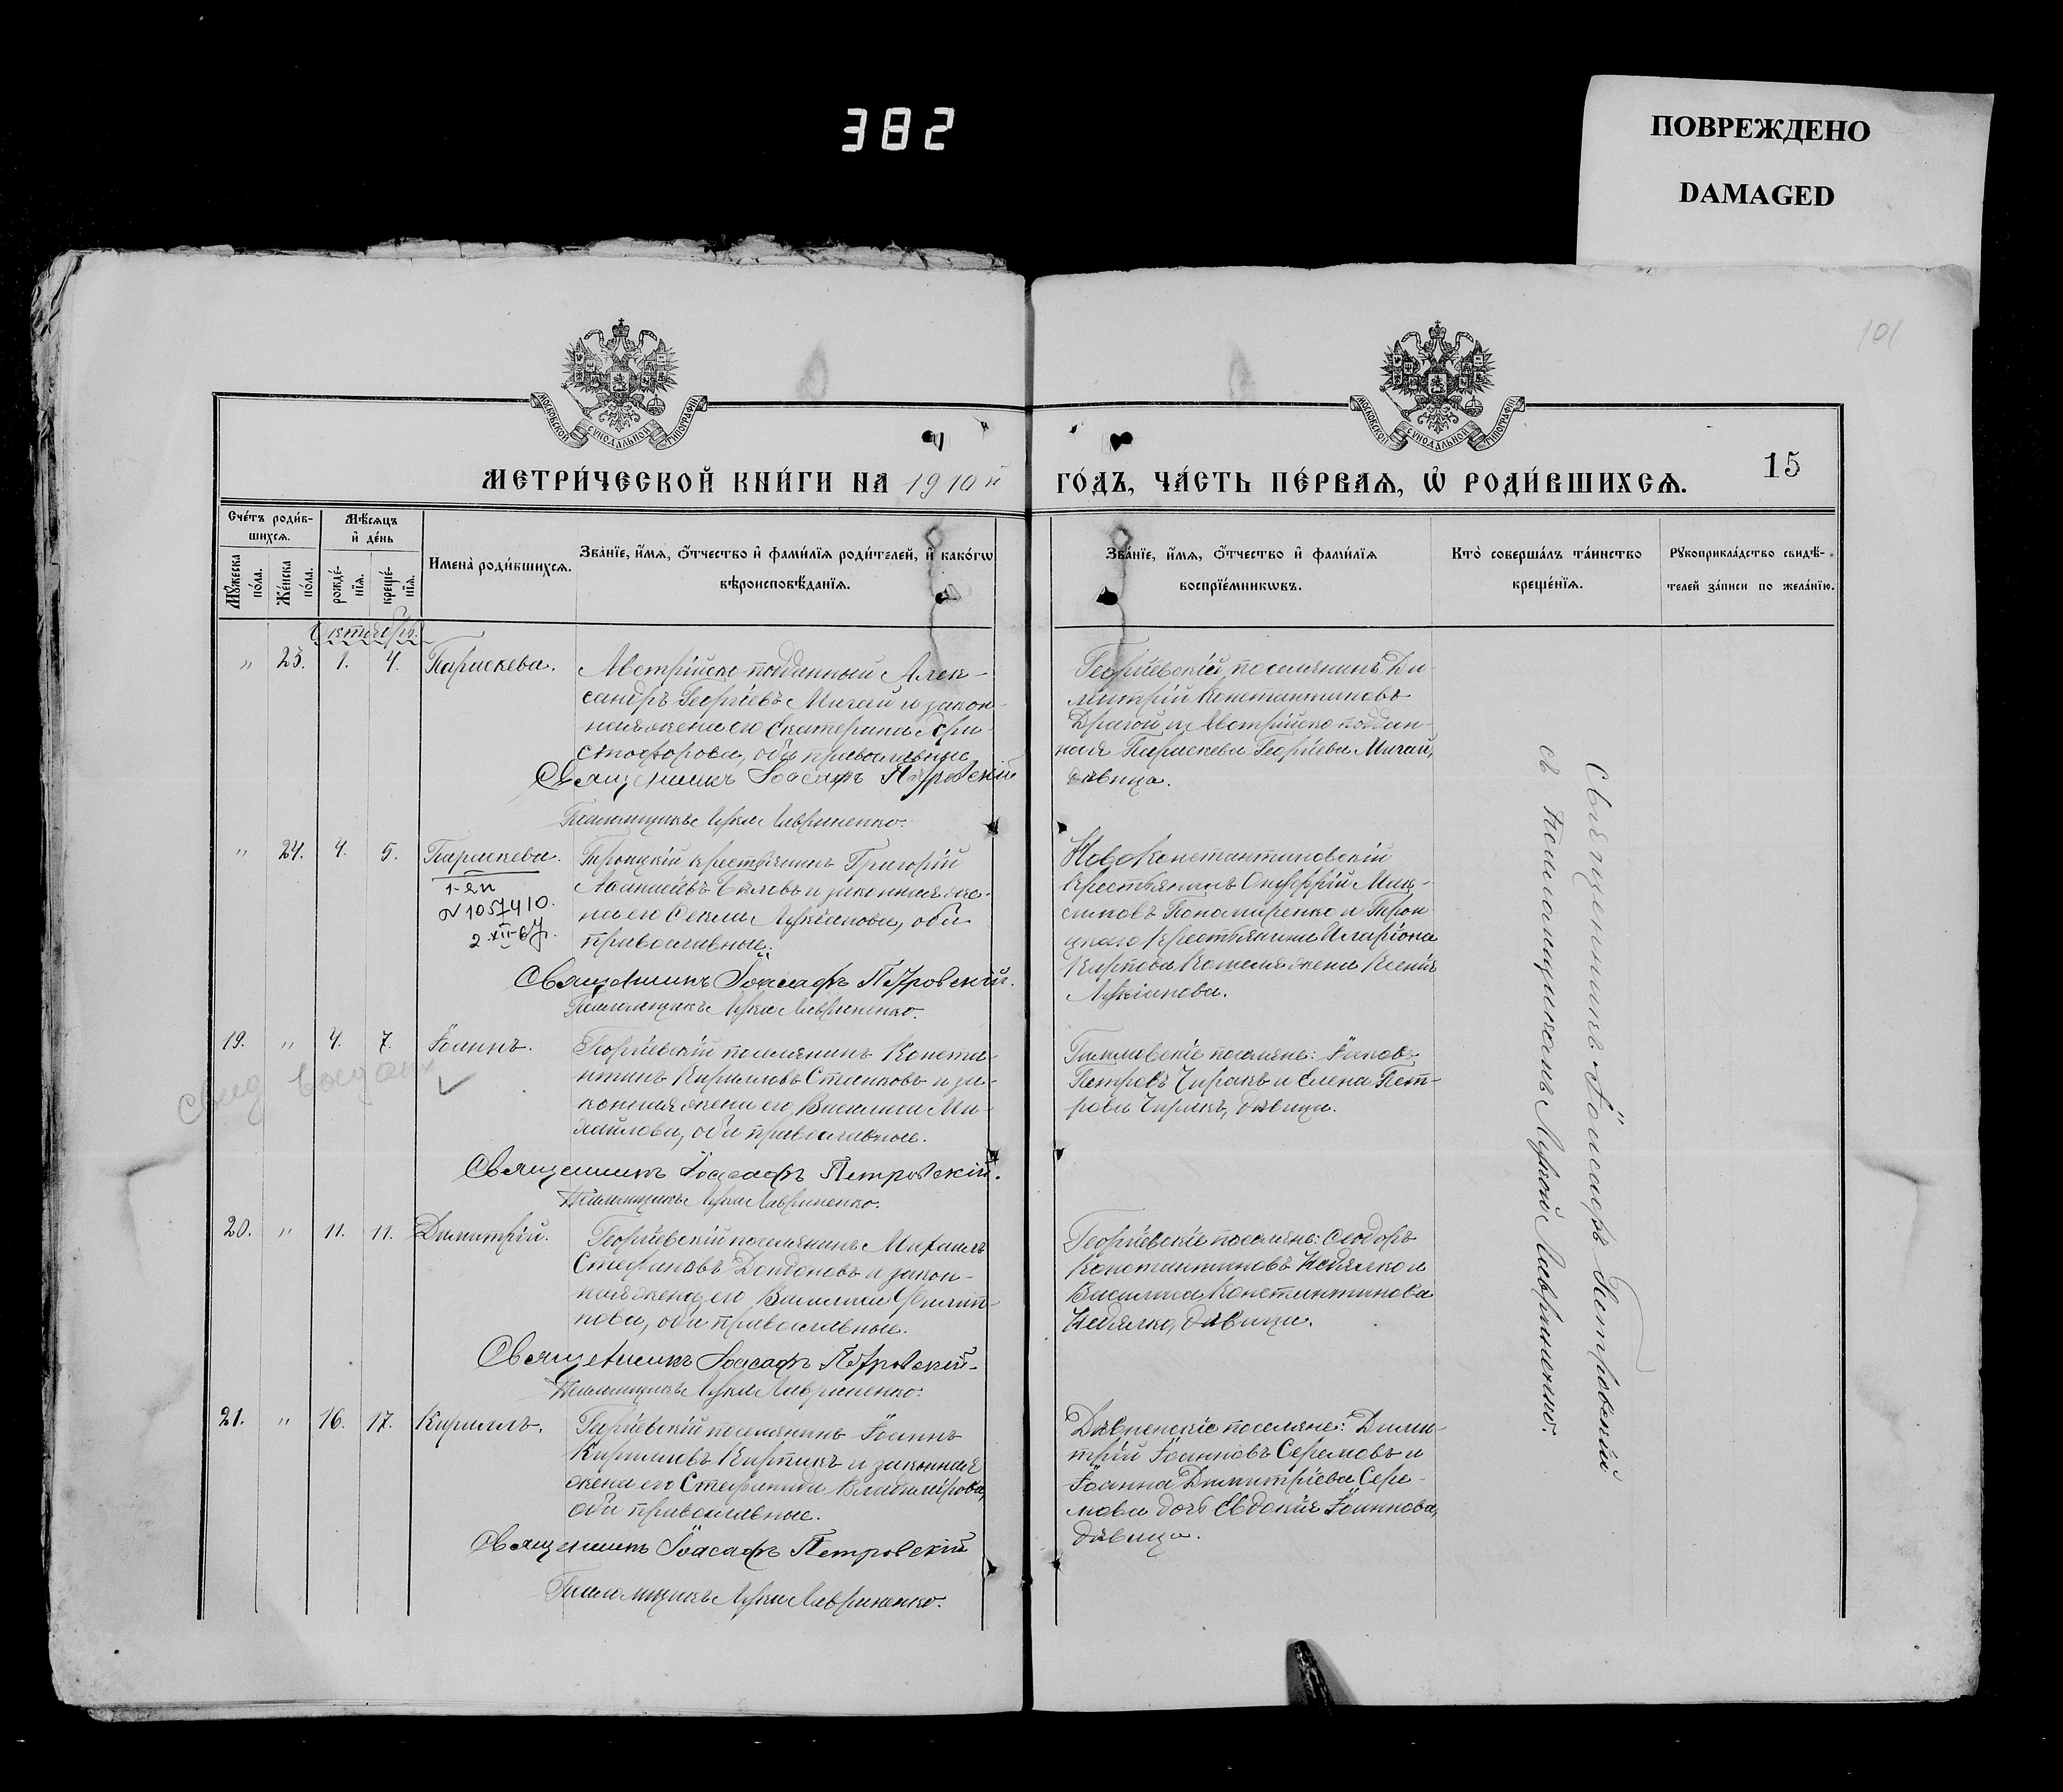 382
ПОВРЕЖДЕНО
DAMAGED
101
МОСКОВСКОЙ СѴНОДАЛЬНОЙ ТИПОГРАФІИ
МОСКОВСКОЙ СѴНОДАЛЬНОЙ ТИПОГРАФІИ
МЕТРИ́ЧЕСКОЙ КНИ́ГИ НА 1910й
ГО́ДЪ, ЧА́СТЬ ПЕ́РВАѦ, Ѡ҆ РОДИ́ВШИХСѦ.
15
Сче́тъ роди́в-
шихсѧ.
Мꙋ́жеска
по́ла.
Же́нска
по́ла.
Мѣ́сѧцъ
и҆ де́нь
рожде́-
нїѧ.
креще́-
нїѧ.
Имена̀ роди́вшихсѧ.
Зва́нїе, и҆́мѧ, ѻ҆́тчество и҆ фами́лїѧ роди́телей, и҆ како́гѡ
вѣроисповѣ́данїѧ.
Зва́нїе, и҆́мѧ, ѻ҆́тчество и҆ фами́лїѧ
воспрїе́мникѡвъ.
Кто̀ соверша́лъ та́инство
креще́нїѧ.
Рꙋкоприкла́дство свидѣ́-
телей за́писи по жела́нїю.
Октябрь.
" 23. 1. 4. Параскева.
Австрійско-подданный Алек-
сандръ Георгіевъ Мигай и закон-
ная жена его Екатерина Хри-
стофорова, оба православные
Священникъ Іоасафъ Петровскій
Псаломщикъ Лука Лавриненко.
Георгіевскій поселянинъ Ди-
митрій Константиновъ
Драгой и Австрійско-поддан-
ная Параскева Георгіева Мигай,
дѣвица.
" 24. 4. 5. Параскева.
1-ЯП
№ 1057410.
2.XII-67г.
Троицкій крестьянинъ Григорій
Аѳанасіевъ Бѣловъ и законная же-
на его Ѳекла Лукіанова, оба
православные.
Священникъ Іоасафъ Петровскій.
Псаломщикъ Лука Лавриненко.
Новоконстантиновскій
крестьянинъ Онуфрій Мак-
симовъ Пономаренко и Трои-
цкаго крестьянина Иларіона
Карпова жена Ксенія
Лукіанова.
19. " 4. 7. Іоаннъ.
Георгіевскій поселянинъ Конста-
нтинъ Кирилловъ Станковъ и за-
конная жена его, Василиса Ми-
хайлова, оба православные.
Священникъ Іоасафъ Петровскій.
Псаломщикъ Лука Лавриненко.
поселяне: Іаковъ
Петровъ Чиракъ и Елена Пет-
рова Чиракъ, дѣвица.
20. " 11. 11. Димитрій.
Георгіевскій поселянинъ Михаилъ
Стефановъ Дондоновъ и закон-
ная жена его Василиса Филип-
пова, оба православные.
Священникъ Іоасафъ Петровскій.
Псаломщикъ Лука Лавриненко.
Георгіевскіе поселяне: Ѳеодоръ
Константиновъ Недялко и
Василиса Константинова
Недялко, дѣвица.
21. " 16. 17. Кириллъ.
Георгіевскій поселянинъ Іоаннъ
Кирилловъ Карпикъ и законная
жена его Стефанида Владимірова,
оба православные.
Священникъ Іоасафъ Петровскій
Псаломщикъ Лука Лавриненко.
Дѣвненскіе поселяне: Дими-
трій Іоанновъ Серемовъ и
Іоанна Димитріева Сере-
мова дочь Евдокія Іоаннова,
дѣвица.
Священникъ Іоасафъ Петровскій
съ Псаломщикомъ Лукой Лавриненко.